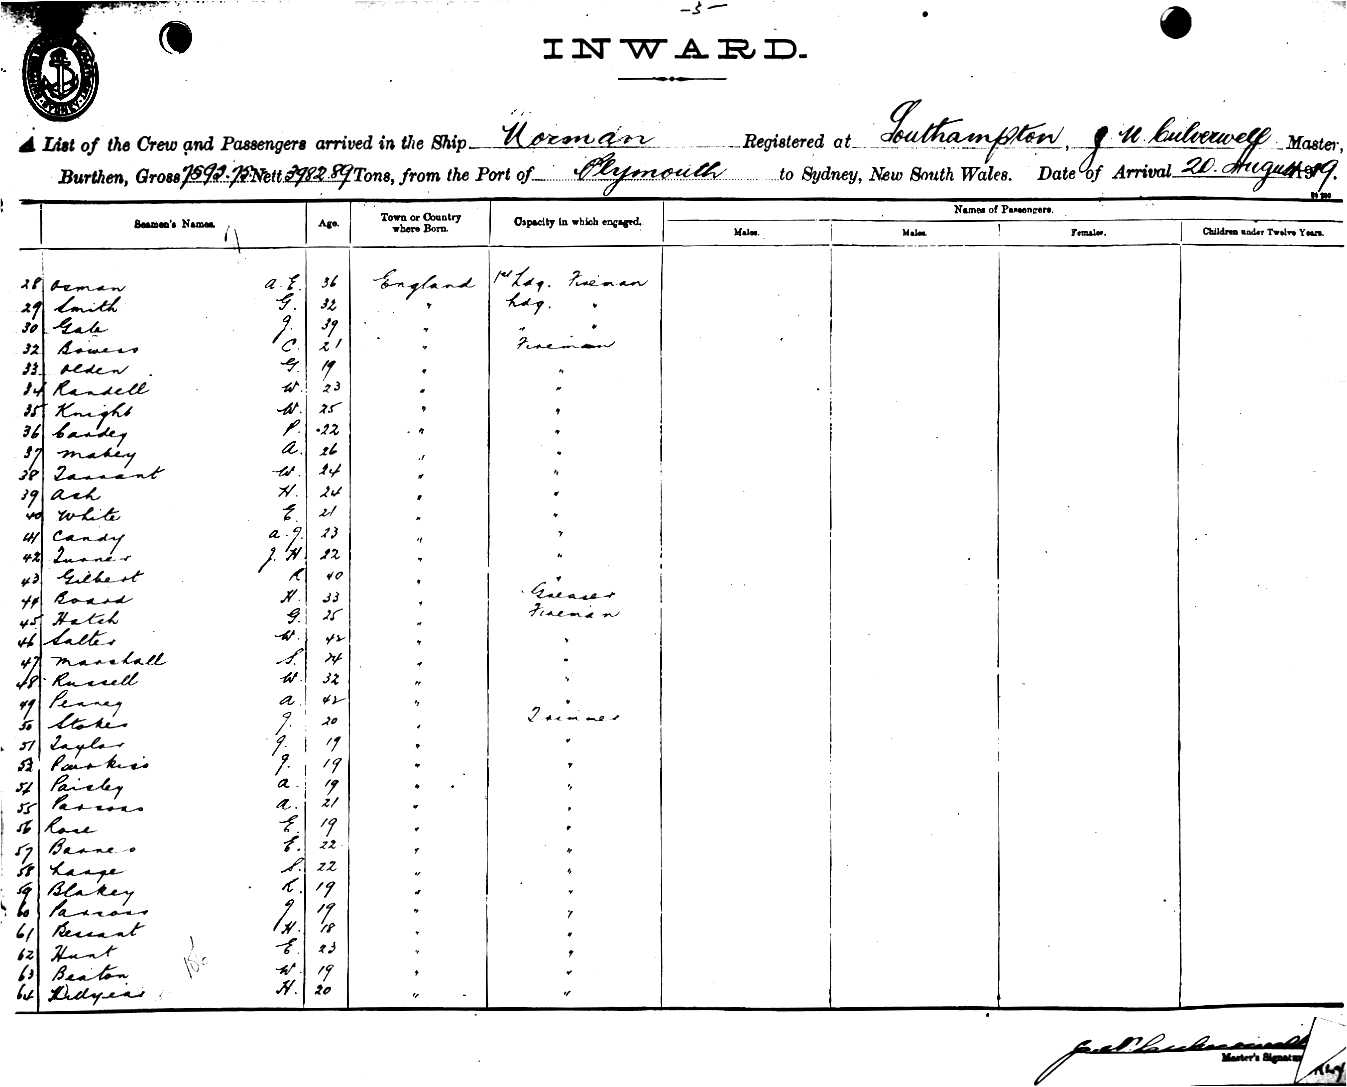 -3-
INWARD.
A List of the Crew and Passengers arrived in the Ship Norman Registered at Southampton, J N. Culverwell Master,
Burthen, Gross 7392.75 Nett 3982.89 Tons, from the Port of Plymouth to Sydney, New South Wales. Date of Arrival 20. August 1919.
Names of Passengers.
Seamen's Names. Age. Town or Country where Born. Capacity in which engaged. Males. Males. Females. Children under Twelve Years.
28 Osman A. E. 36 England 1st Ldg. Fireman
29 Smith G. 32 " Ldg. "
30 Gale J. 39 " " "
32 Bowers C. 21 " Fireman
33 Olden G. 19 " "
34 Randell W. 23 " "
35 Knight W. 25 " "
36 Candey P. 22 " "
37 Mabey A. 26 " "
38 Tarrant W. 24 " "
39 Ash H. 24 " "
40 White E. 21 " "
41 Candy A. J. 23 " "
42 Turner J. H. 22 " "
43 Gilbert R 40 " "
44 Board H. 33 " Greaser
45 Hatch G. 25 " Fireman
46 Salter W. 42 " "
47 Marshall S. 24 " "
48 Russell W. 32 " "
49 Penney A. 42 " "
50 Stokes J. 20 " Trimmer
51 Taylor J. 19 " "
53 Parkiss J. 19 " "
54 Paisley A. 19 " "
55 Parsons A. 21 " "
56 Rose E. 19 " "
57 Barnes E. 22 " "
58 Lange S. 22 " "
59 Blakey R. 19 " "
60 Parsons J 19 " "
61 Bessant H. 18 " "
62 Hunt E. 23 " "
63 Beaton W. 19 " "
64 H. 20 " "
Master's Signature